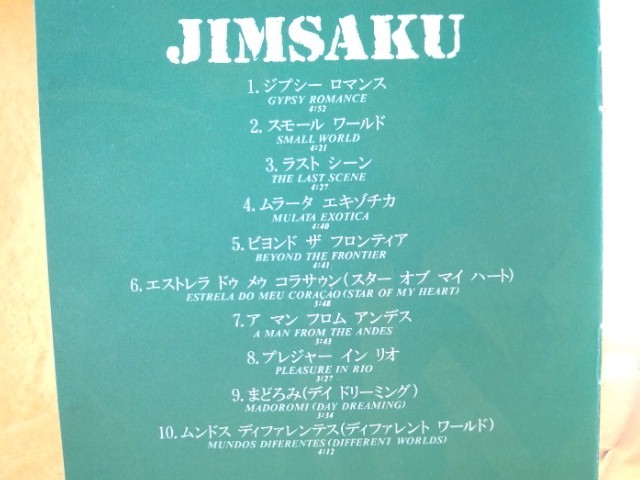 JIMSAKU
1.ジプシー ロマンス
GYPSY ROMANCE
4:52
2.スモール ワールド
SMALL WORLD
4:21
3.ラスト シーン
THE LAST SCENE
4:27
4.ムラータ エキゾチカ
MULATA EXOTICA
4:40
5.ビヨンド ザ フロンティア
BEYOND THE FRONTIER
4:41
6.エストレラ ドゥ メゥ コラサゥン(スター オブ マイ ハート)
ESTRELA DO MEU CORAÇAO(STAR OF MY HEART)
3:48
7.ア マン フロム アンデス
A MAN FROM THE ANDES
3:43
8.プレジャー イン リオ
PLEASURE IN RIO
3:27
9.まどろみ(デイ ドリーミング)
MADOROMI(DAY DREAMING)
3:34
10.ムンドス ディファレンテス(ディファレント ワールド)
MUNDOS DIFERENTES(DIFFERENT WORLDS)
4:12